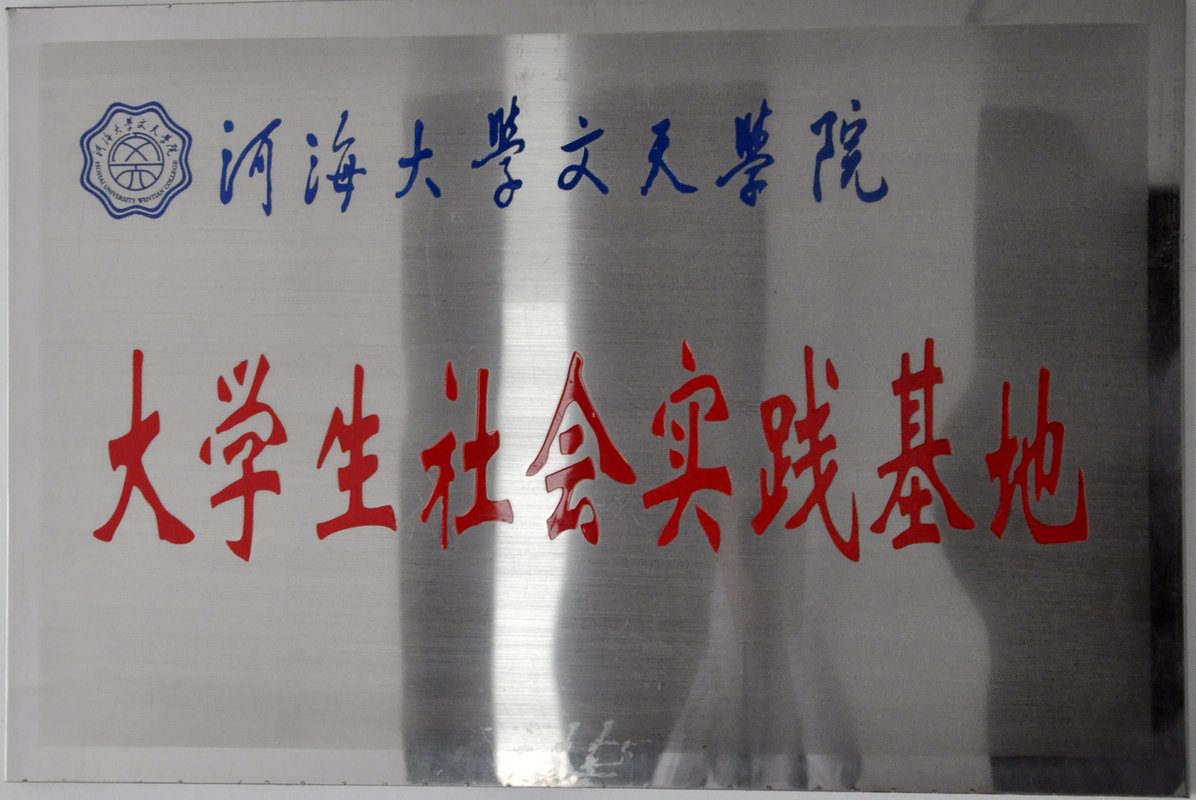 河海大学文天学院
HOHAI UNIVERSITY WENTIAN COLLEGE
河海大學文天學院
大学生社会实践基地